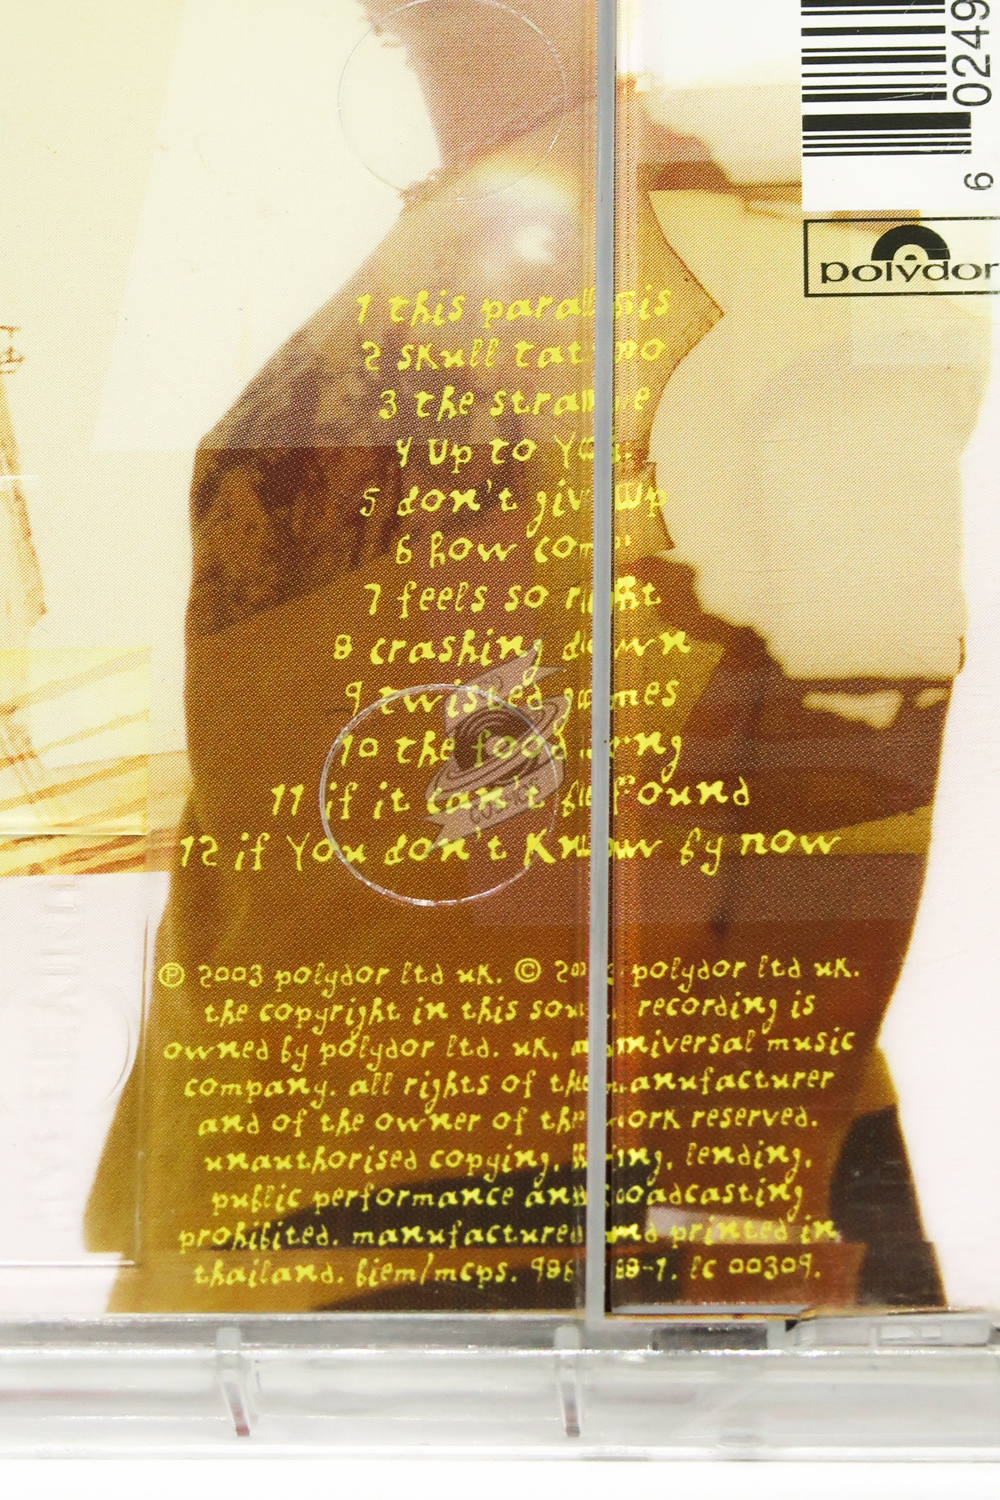 6 0249
polydor
1 this paralysis
2 skull tattoo
3 the strange
4 up to you
5 don't give up
6 how come
7 feels so right
8 crashing down
9 twisted games
10 the fool
11 if it can't be found
12 if you don't know by now
℗ 2003 polydor ltd uk. © 2003 polydor ltd uk.
the copyright in this sound recording is
owned by polydor ltd. uk, a universal music
company. all rights of the manufacturer
and of the owner of the work reserved.
unauthorised copying, hiring, lending,
public performance and broadcasting
prohibited. manufactured and printed in
thailand. biem/mcps. 88-7. lc 00309.